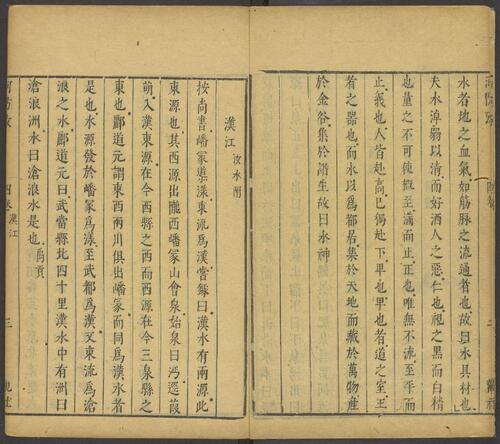 水者地之血氣如筋脉之流通者也故曰水具材也
夫水淖弱以清而好洒人之惡仁也視之黑而白精
也量之不可使概至滿而止正也唯無不流至平而
止義也人皆赴高巳獨赴下卑也卑也者道之室王
者之器也而水以爲都居集於天地而藏於萬物産
於金谷集於諸生故曰水神
漢江汝水附
按尚書嶓冢導漾東流爲漢嘗錄曰漢水有兩源此
東源也其西源出隴西嶓冢山會泉始泉曰沔逕葭
萌入漢東源在今西縣之西而西源在今三泉縣之
東也酈道元謂東西兩川俱出嶓冢而同爲漢水者
是也水源發於嶓冢爲漾至武都爲漢又東流爲滄
浪之水酈道元曰武當縣北四十里漢水中有洲曰
滄浪洲水曰滄浪水是也禹貢
四卷 漢江
三